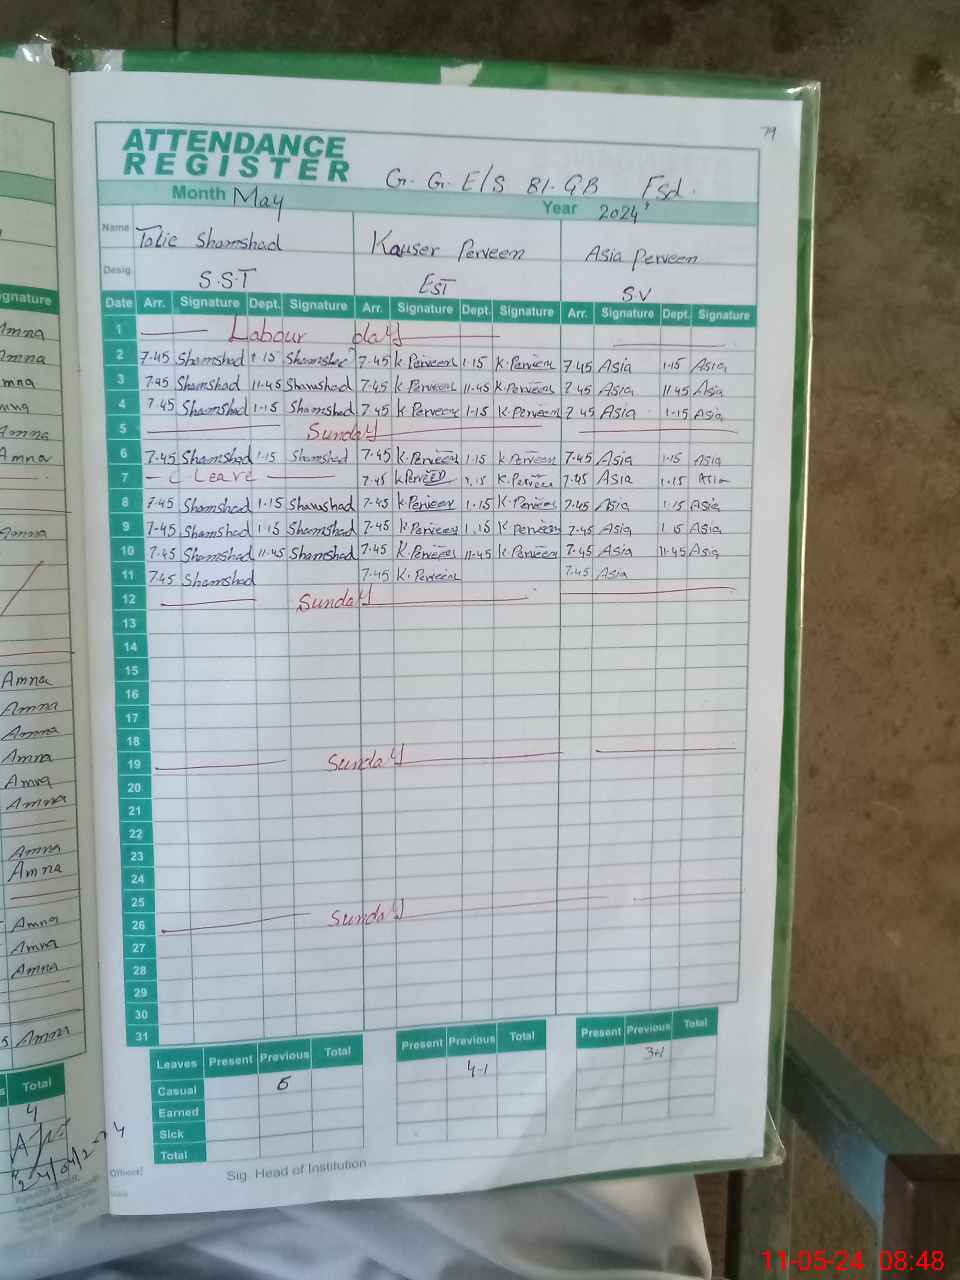 79
ATTENDANCE
REGISTER
G. G. E/S 81. GB Fsd.
Month May Year 2024
Name Shamshad Kauser Perveen Asia Perveen
Desig. S.S.T EST S.V
Date Arr. Signature Dept. Signature Arr. Signature Dept. Signature Arr. Signature Dept. Signature
1 Labour day
2 7.45 Shamshad 1.15 Shamshad 7.45 K Perveen 1.15 K.Perveen 7.45 Asia 1.15 Asia
3 7.45 Shamshad 11.45 Shamshad 7.45 K Perveen 11.45 K.Perveen 7.45 Asia 11.45 Asia
4 7.45 Shamshad 1.15 Shamshad 7.45 K Perveen 1.15 K.Perveen 7.45 Asia 1.15 Asia
5 Sunday
6 7.45 Shamshad 1.15 Shamshad 7.45 K.Perveen 1.15 K Perveen 7.45 Asia 1.15 Asia
7 C Leave 7.45 K Perveen 1.15 K.Perveen 7.45 Asia 1.15 Asia
8 7.45 Shamshad 1.15 Shamshad 7.45 K Perveen 1.15 K.Perveen 7.45 Asia 1.15 Asia
9 7.45 Shamshad 1.15 Shamshad 7.45 K Perveen 1.15 K Perveen 7.45 Asia 1.15 Asia
10 7.45 Shamshad 11.45 Shamshad 7.45 K.Perveen 11.45 K Perveen 7.45 Asia 11.45 Asia
11 7.45 Shamshad 7.45 K. Perveen 7.45 Asia
12 Sunday
13
14
15
16
17
18
19 Sunday
20
21
22
23
24
25
26 Sunday
27
28
29
30
31
Leaves Present Previous Total Present Previous Total Present Previous Total
Casual 6 4-1 3+1
Earned
Sick
Total
Sig. Head of Institution
gnature
Amna
Amna
mna
mna
Amna
Amna
Amna
Amna
Amna
Amna
Amna
Amna
Amna
Amna
Amna
Amna
Amna
Amna
Amna
Total
4
11-05-24 08:48